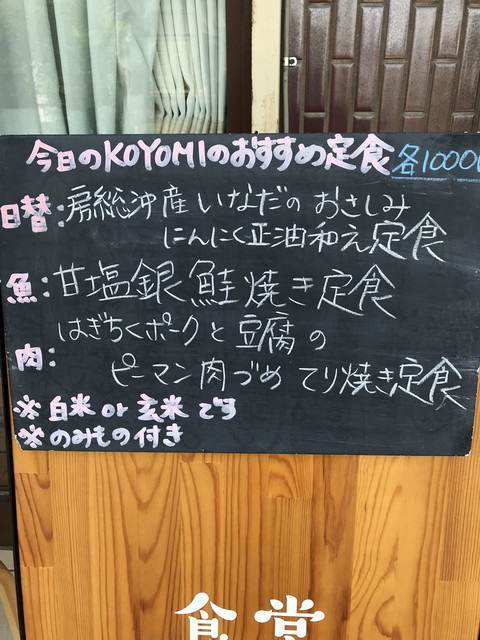 今日のKOYOMIのおすすめ定食 各1000
日替:房総沖産いなだのおさしみ
にんにく正油和え定食
魚:甘塩銀鮭焼き定食
はぎちくポークと豆腐の
肉:
ピーマン肉づめてり焼き定食
※白米or玄米です
※のみもの付き
食堂